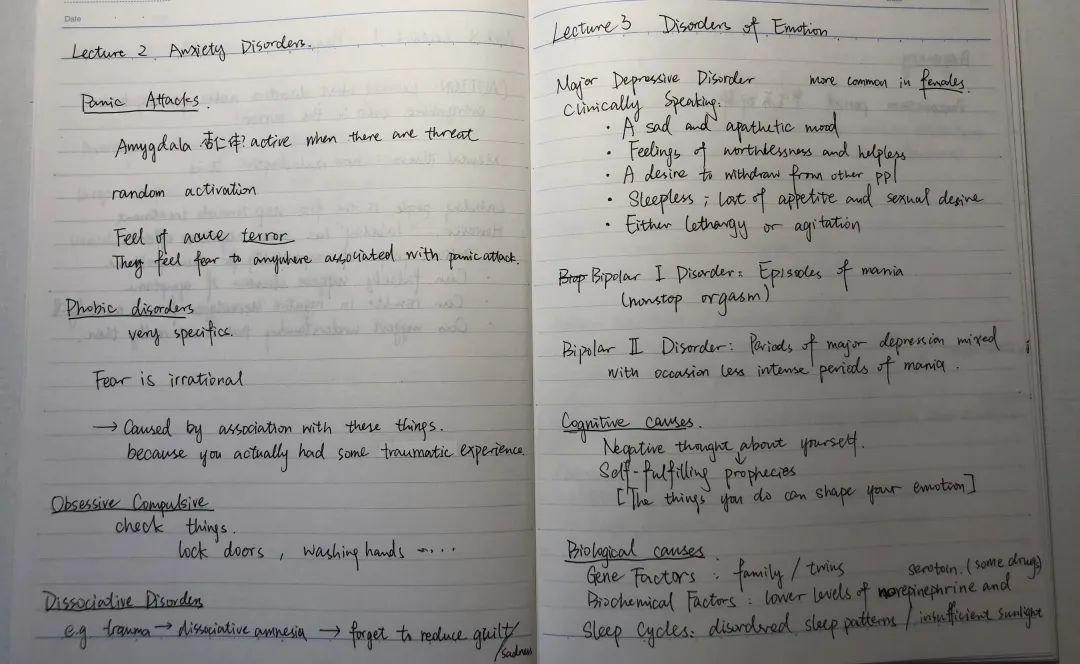 Date
Lecture 2 Anxiety Disorders.
Panic Attacks.
Amygdala 杏仁体? active when there are threat
random activation
Feel of acute terror
They feel fear to anywhere associated with panic attack.
Phobic disorders
very specifics.
Fear is irrational
→ Caused by association with these things.
because you actually had some traumatic experience.
Obsessive Compulsive
check things.
lock doors, washing hands ....
Dissociative Disorders
e.g trauma → dissociative amnesia → forget to reduce guilt/
sadness
Lecture 3 Disorders of Emotion
Major Depressive Disorder more common in females.
Clinically Speaking:
· A sad and apathetic mood
· Feelings of worthlessness and helpless
· A desire to withdraw from other ppl
· Sleepless; Lost of appetite and sexual desire
· Either Lethargy or agitation
Bipolar I Disorder: Episodes of mania
(nonstop orgasm)
Bipolar II Disorder: Periods of major depression mixed
with occasion less intense periods of mania.
Cognitive causes.
Negative thought about yourself.
↓
Self-fulfilling prophecies
[The things you do can shape your emotion]
Biological causes.
Gene Factors: family / twins
serotoin. (some drugs)
Biochemical Factors: lower levels of norepinephrine and
Sleep Cycles: disordered sleep patterns / insufficient sunlight